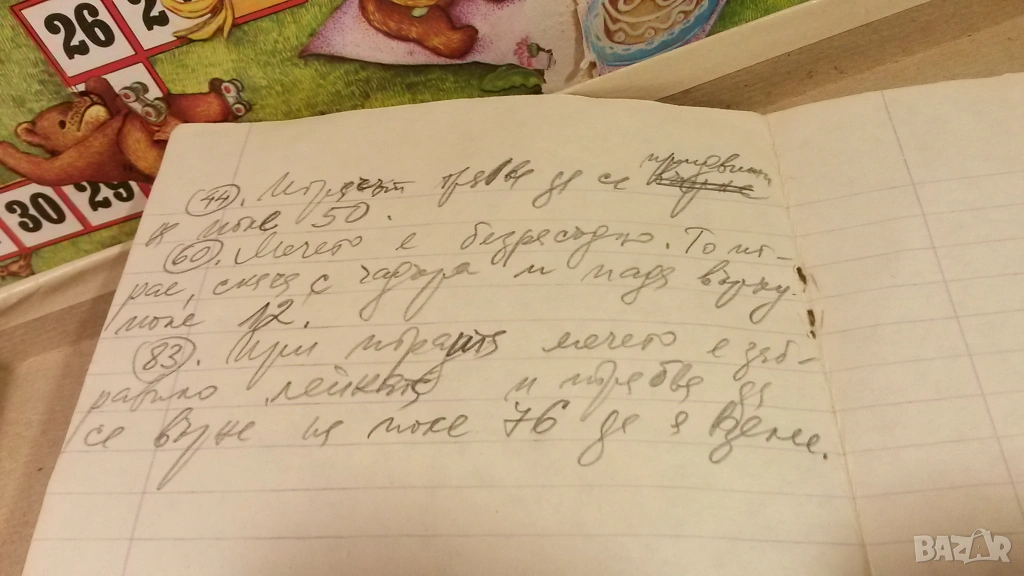 26 2
30 29
44. Играчът трябва да се придвижи
на поле 50.
60. Мечето е безразсъдно. То иг-
рае, скача с чадъра и пада върху
поле 12.
83. При играта мечето е заб-
равило лейката и трябва да
се върне на поле 76 да я вземе.
BAZAR